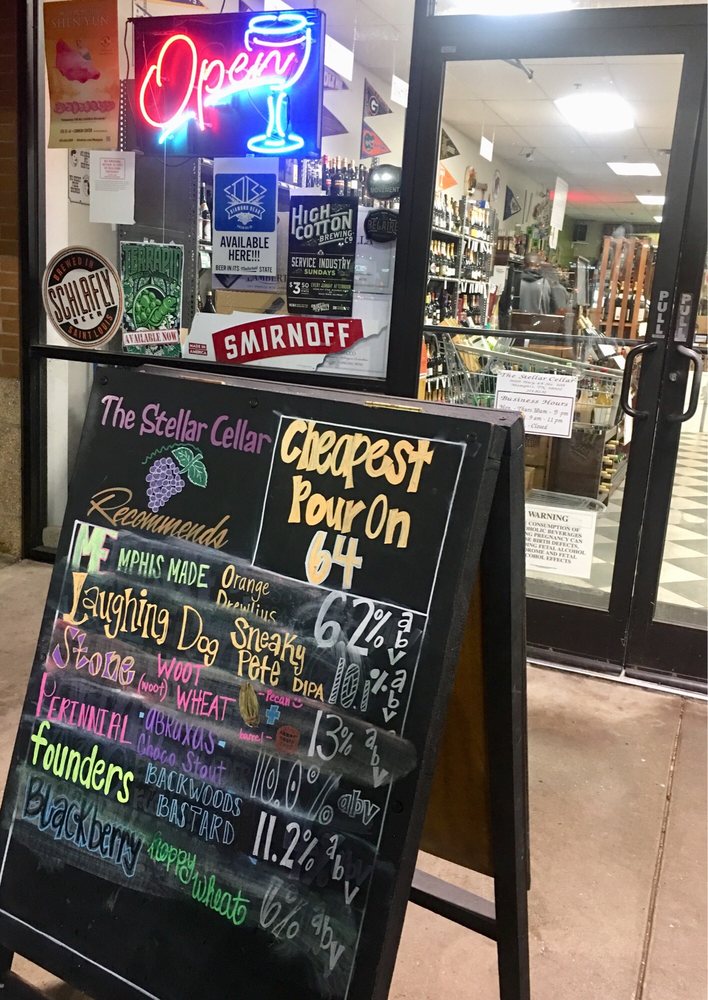 SHEN YUN
Open
DIAMOND BEAR
AVAILABLE
HERE!!!
BEER IN ITS STATE
HIGH
COTTON
BREWING
CO
SERVICE INDUSTRY
SUNDAYS
$3.50
MOVEMENT
BREWED IN
SCHLAFLY
BEER
SAINT LOUIS
TERRAPIN
AVAILABLE NOW
MADE IN
AMERICA
SMIRNOFF
PULL
PULL
The Stellar Cellar
Business Hours
WARNING
CONSUMPTION OF
BEVERAGES
PREGNANCY CAN
BIRTH DEFECTS,
FETAL ALCOHOL
AND FETAL
EFFECTS
The Stellar Cellar
Recommends
Cheapest
Pour On
64
MEMPHIS MADE Orange Drewlius 6.2% abv
Laughing Dog Sneaky Pete DIPA 10.1% abv
Stone WOOT (woot) WHEAT -Pecan + barrel- 13% abv
PERINNIAL -ABRUXUS- Choco Stout 10.0% abv
founders BACKWOODS BASTARD 11.2% abv
Blackberry hoppy wheat 6% abv